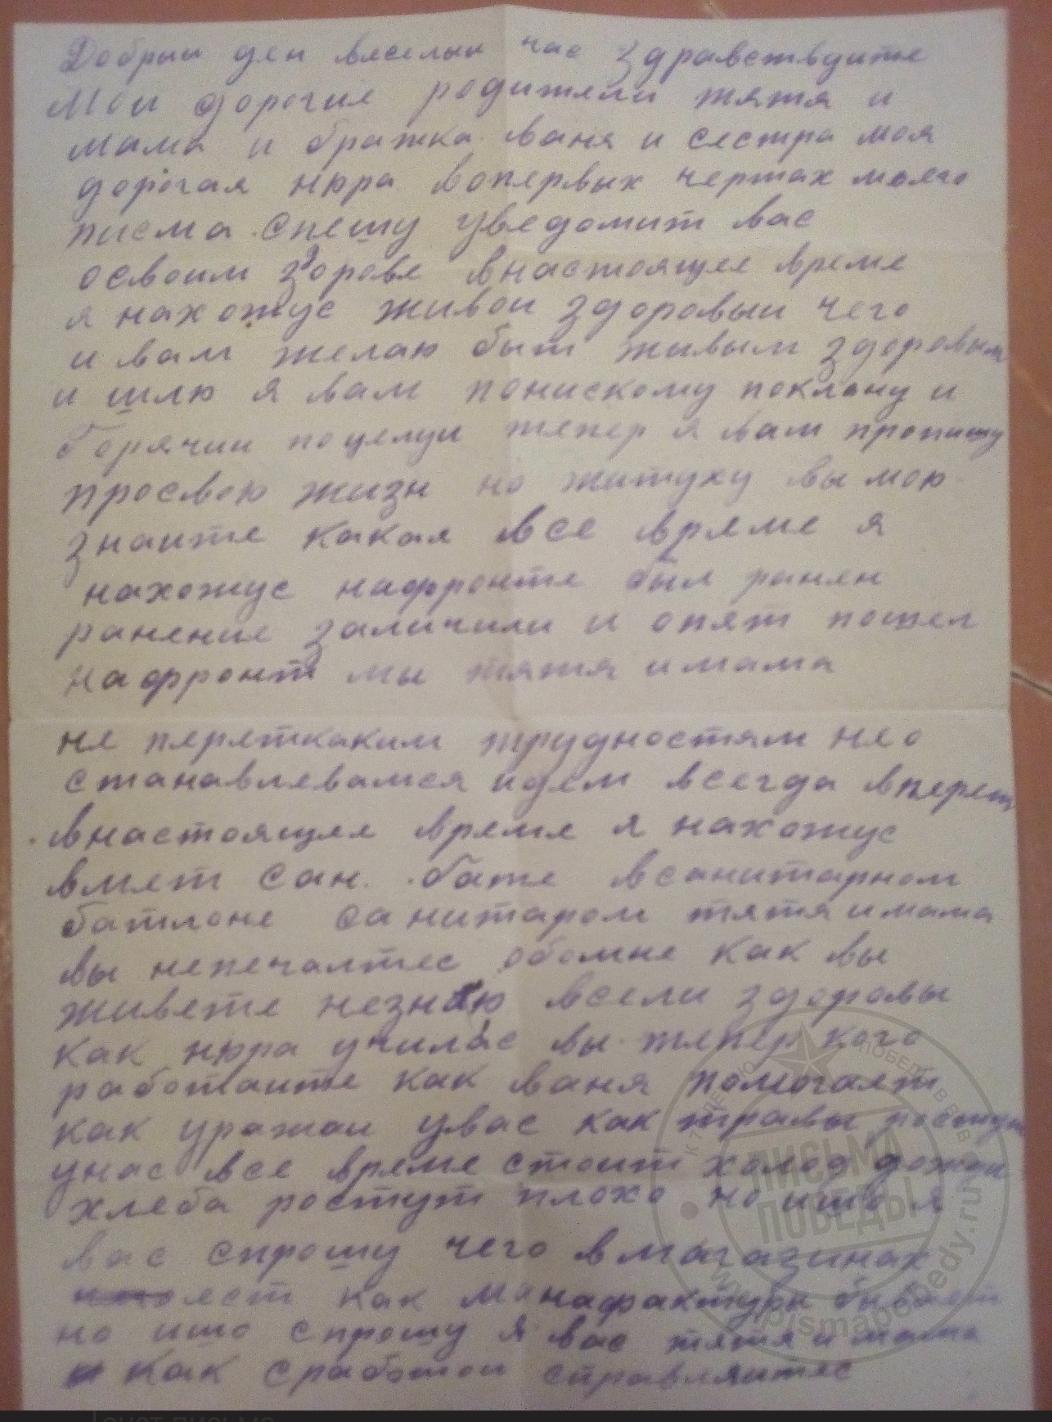 Добрыи ден веселыи час здравствдите
Мои дорогие родители тятя и
мама и братка Ваня и сестра моя
дорогая нюра вопервых чертах моего
писма спешу уведомит вас
освоим здорове внастоящее време
я нахожус живои здоровыи чего
и вам желаю быт живым здоровым
и шлю я вам понискому поклону и
Горячии поцелуи тепер я вам пропишу
просвою жизн но житуху вы мою
знаите какая все време я
нахожус нафронте был ранен
ранение заличили и опят пошел
нафронт мы тятя имама
не перяткаким трудностям нео
станавлеваемся идем всегда вперет
внастоящее време я нахожус
вмет сан. бате всанитарном
батлоне санитаром тятя имама
вы непечалтес обомне как вы
живете незнаю всели здоровы
как нюра училас вы тепер кого
работаите как ваня помогает
как уражаи увас как травы ростут
унас все време стоит холод дожди
хлеба ростут плохо но ишо я
вас спрошу чего вмагазинах
ест как манафактуры бывает
но ишо спрошу я вас тятя и мама
как сработои справляитес
ПИСЬМА
ПОБЕДЫ
www.pismapobedy.ru